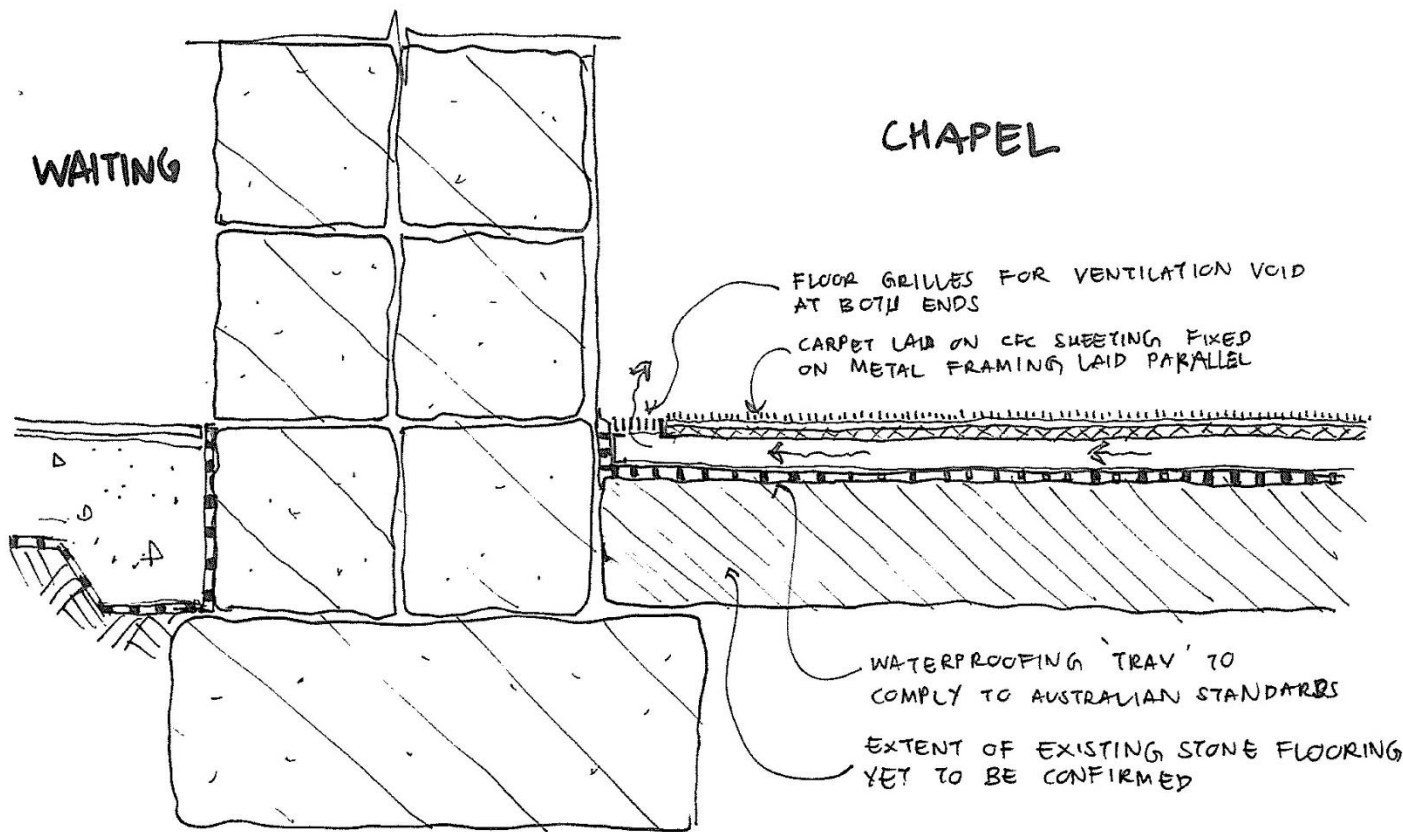 WAITING
CHAPEL
FLOOR GRILLES FOR VENTILATION VOID
AT BOTH ENDS
CARPET LAID ON CFC SHEETING FIXED
ON METAL FRAMING LAID PARALLEL
WATERPROOFING 'TRAY' TO
COMPLY TO AUSTRALIAN STANDARDS
EXTENT OF EXISTING STONE FLOORING
YET TO BE CONFIRMED